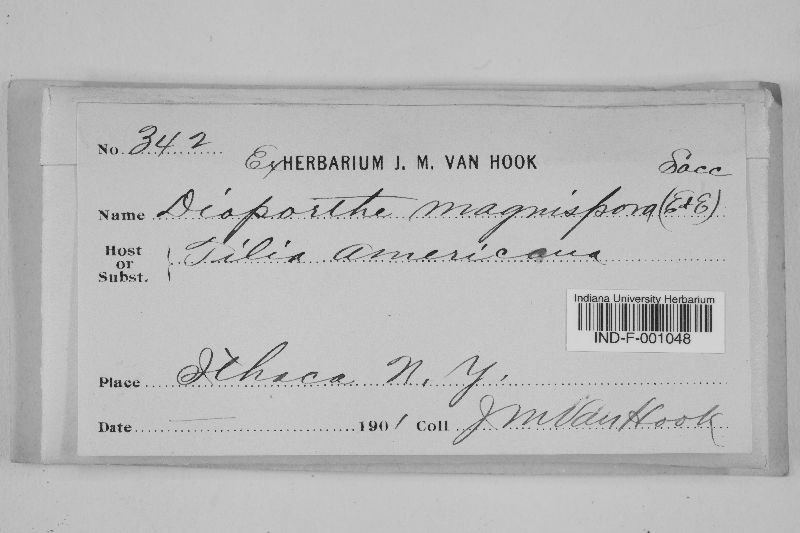 No. 342
Ex HERBARIUM J. M. VAN HOOK
Sacc
Name Diaporthe magnispora (E & E)
Host or Subst. Tilia americana
Indiana University Herbarium
IND-F-001048
Place Ithaca N. Y.
Date 1901 Coll J M Van Hook